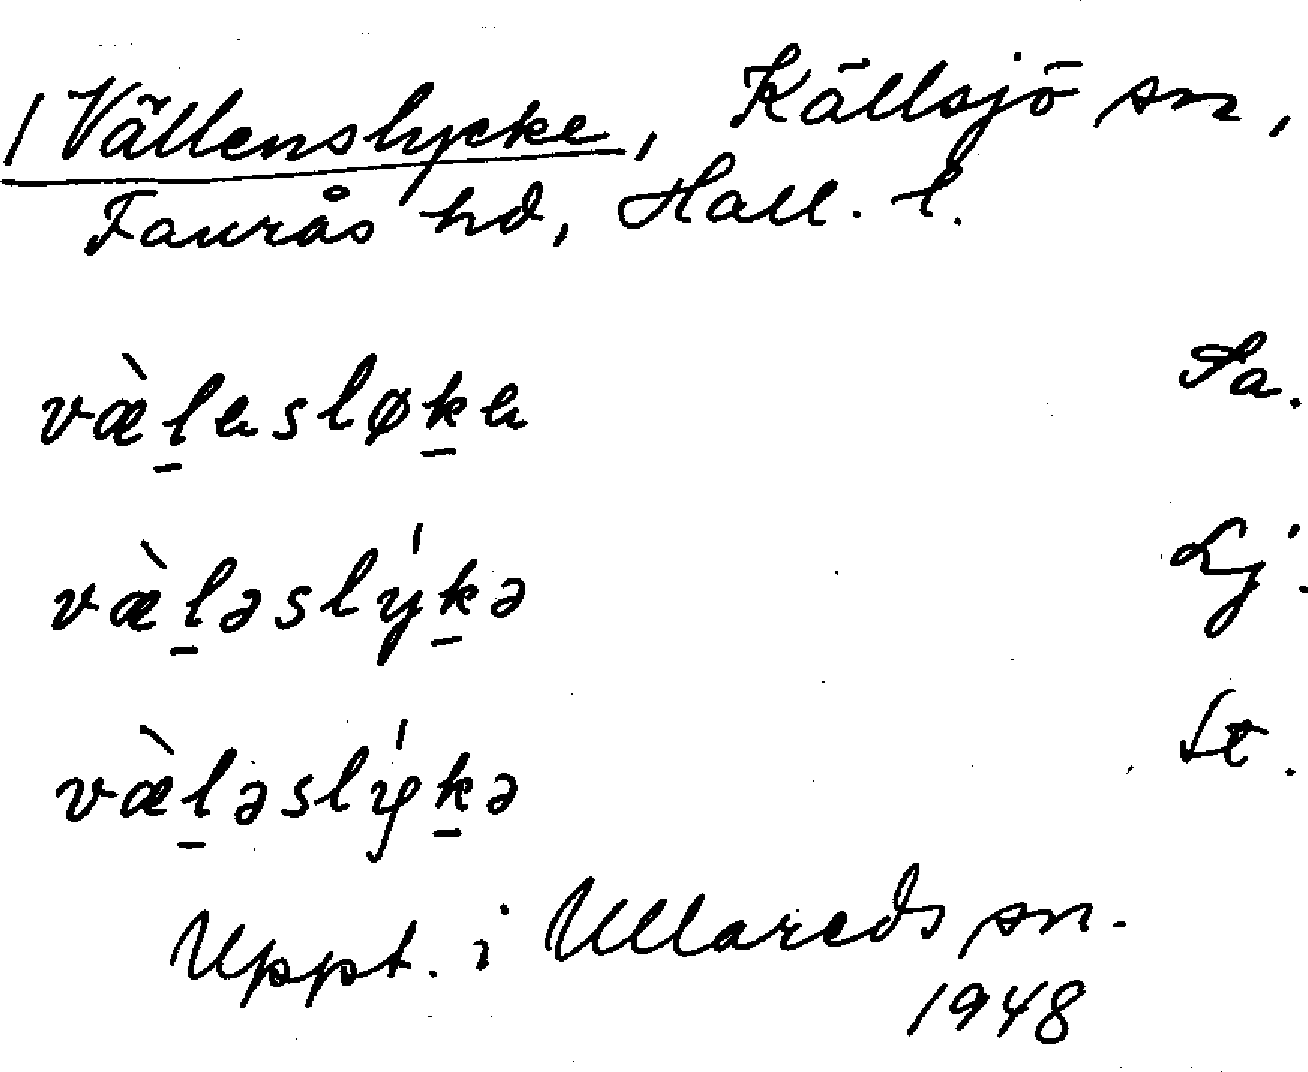 / Vällenslycke, Källsjö sn,
Faurås hd, Hall. l.
væ̀l̠ɐsløk̠ɐ Sa.
væ̀l̠əslýk̠ə Lj.
væ̀l̠əslýk̠ə St.
Uppt. i Ullareds sn.
1948